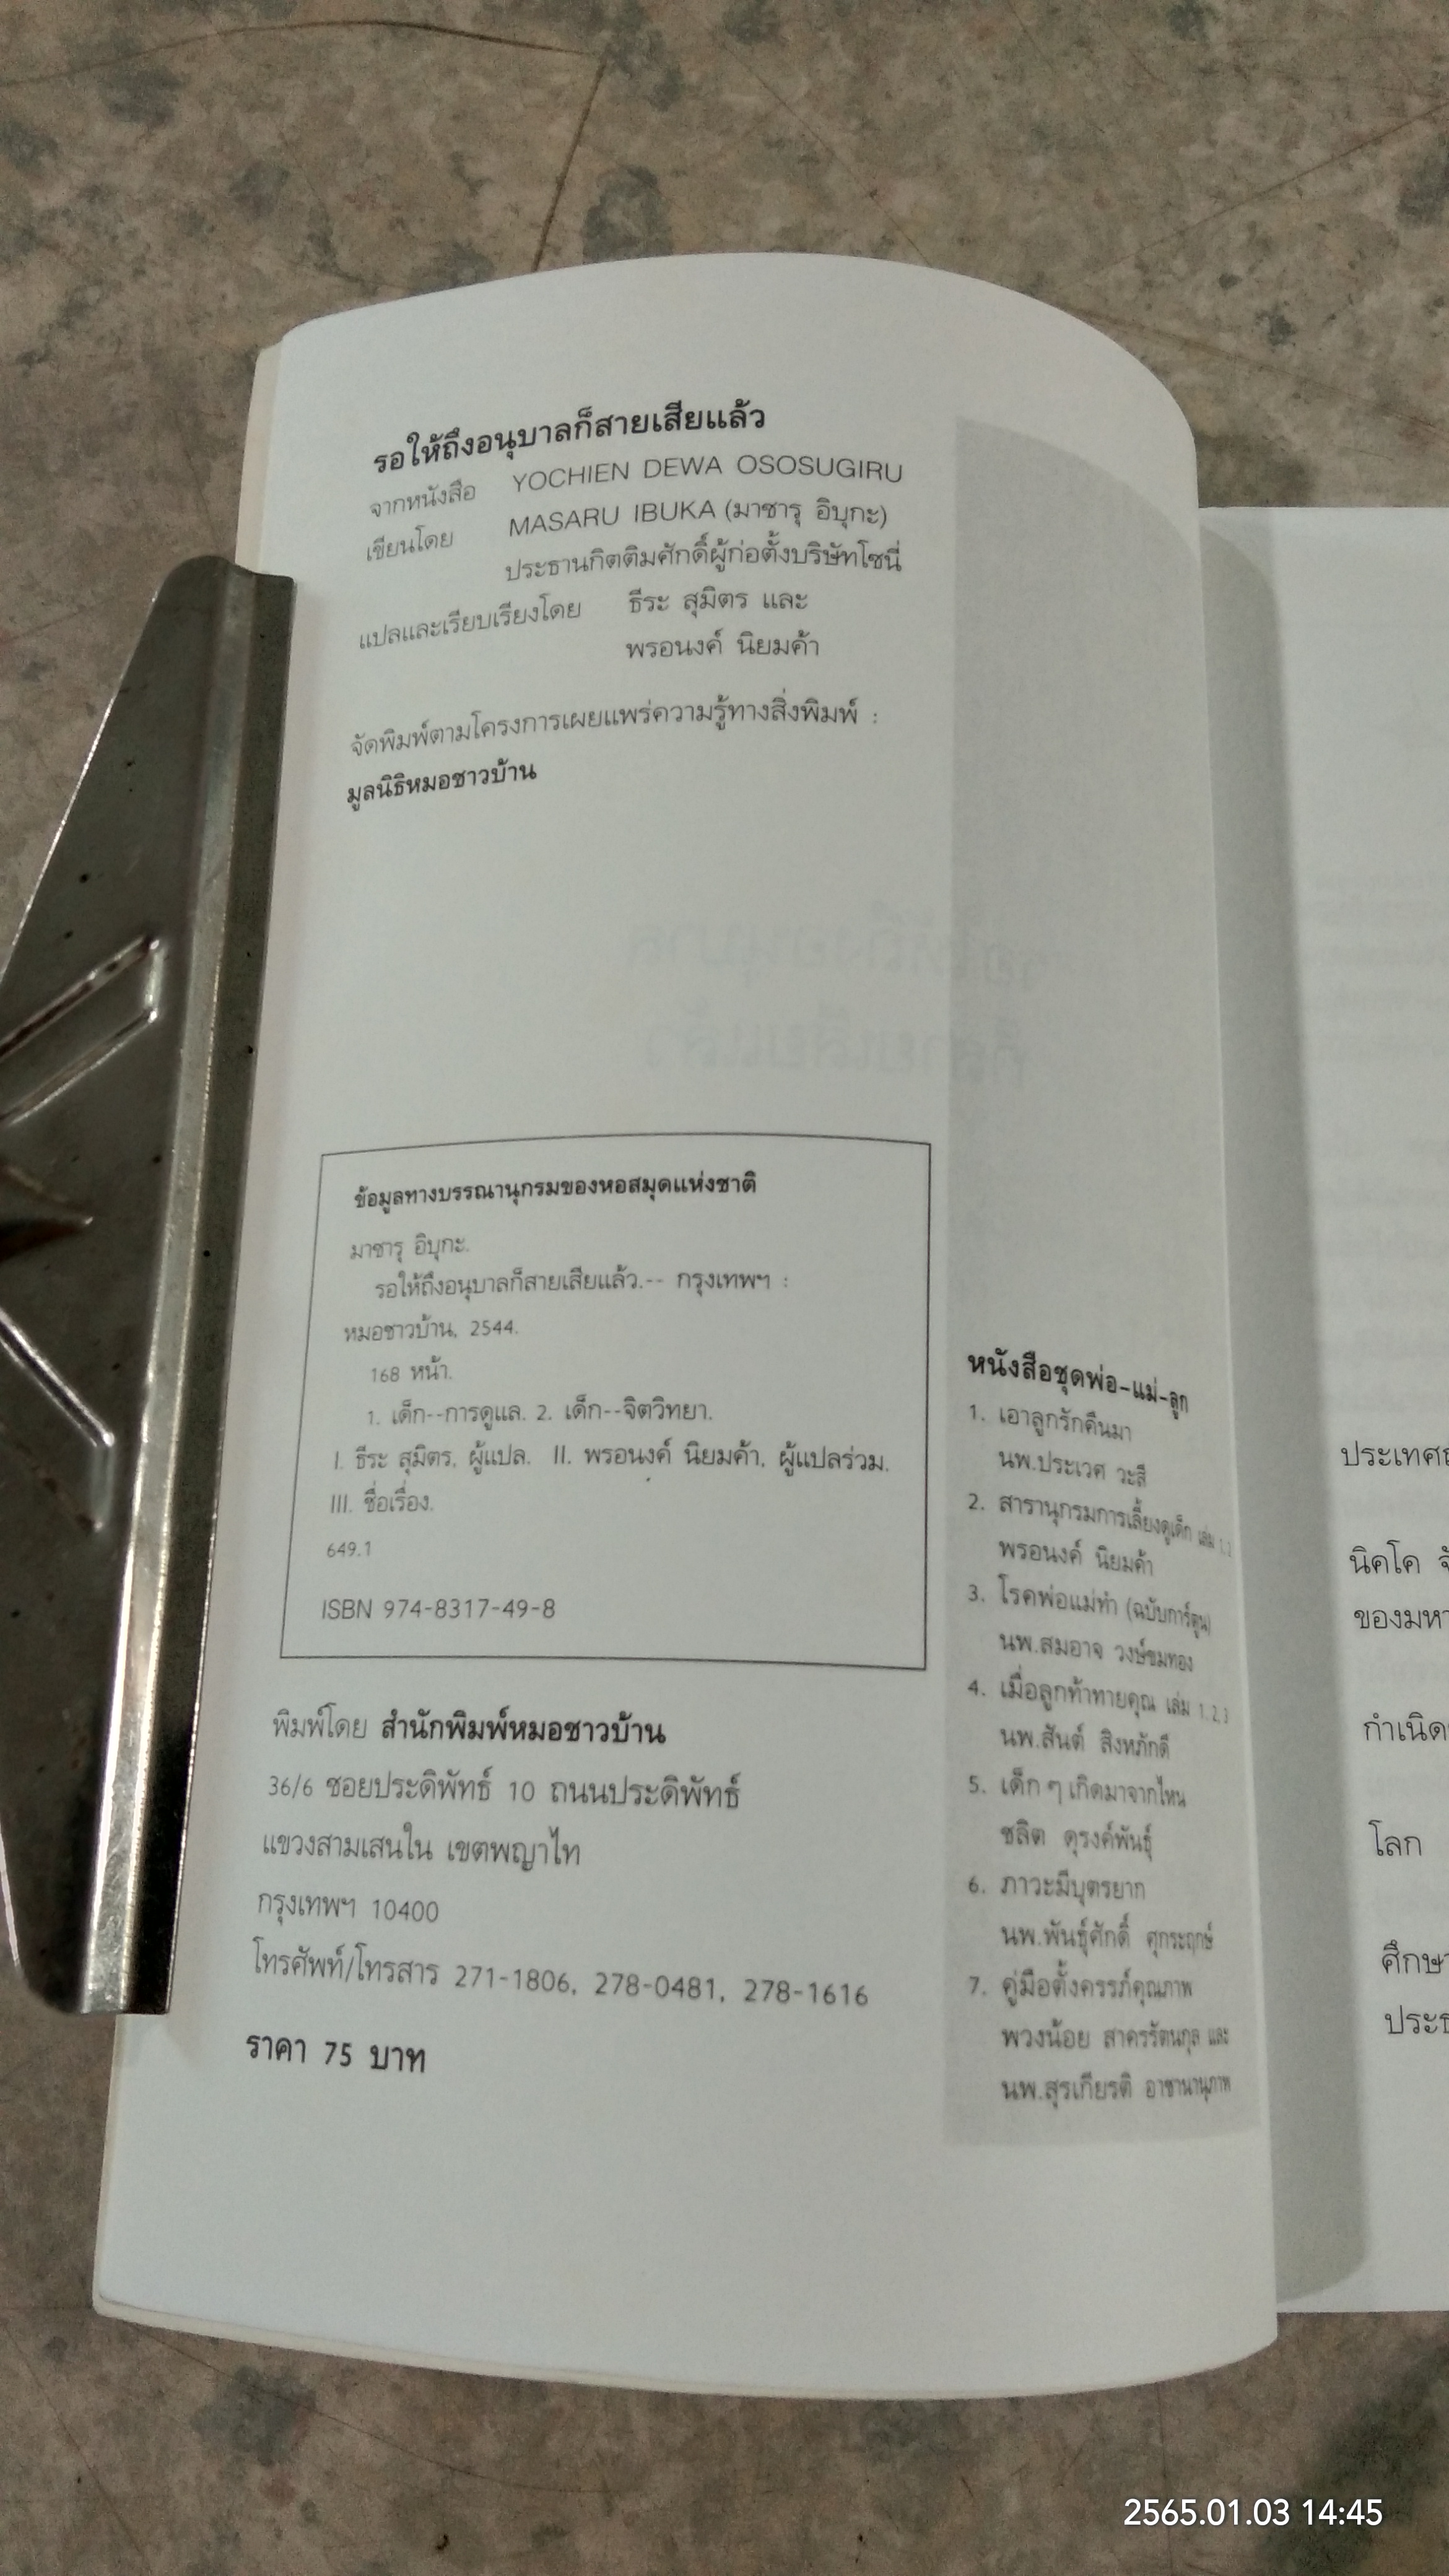 รอให้ถึงอนุบาลก็สายเสียแล้ว
จากหนังสือ YOCHIEN DEWA OSOSUGIRU
เขียนโดย MASARU IBUKA (มาซารุ อิบุกะ)
ประธานกิตติมศักดิ์ผู้ก่อตั้งบริษัทโซนี่
แปลและเรียบเรียงโดย ธีระ สุมิตร และ
พรอนงค์ นิยมค้า
จัดพิมพ์ตามโครงการเผยแพร่ความรู้ทางสิ่งพิมพ์ :
มูลนิธิหมอชาวบ้าน
ข้อมูลทางบรรณานุกรมของหอสมุดแห่งชาติ
มาซารุ อิบุกะ.
รอให้ถึงอนุบาลก็สายเสียแล้ว.-- กรุงเทพฯ :
หมอชาวบ้าน, 2544.
168 หน้า.
1. เด็ก--การดูแล. 2. เด็ก--จิตวิทยา.
I. ธีระ สุมิตร, ผู้แปล. II. พรอนงค์ นิยมค้า, ผู้แปลร่วม.
III. ชื่อเรื่อง.
649.1
ISBN 974-8317-49-8
พิมพ์โดย สำนักพิมพ์หมอชาวบ้าน
36/6 ซอยประดิพัทธ์ 10 ถนนประดิพัทธ์
แขวงสามเสนใน เขตพญาไท
กรุงเทพฯ 10400
โทรศัพท์/โทรสาร 271-1806, 278-0481, 278-1616
ราคา 75 บาท
หนังสือชุดพ่อ-แม่-ลูก
1. เอาลูกรักคืนมา
นพ.ประเวศ วะสี
2. สารานุกรมการเลี้ยงดูเด็ก เล่ม 1,2
พรอนงค์ นิยมค้า
3. โรคพ่อแม่ทำ (ฉบับการ์ตูน)
นพ.สมอาจ วงษ์ขมทอง
4. เมื่อลูกท้าทายคุณ เล่ม 1,2,3
นพ.สันต์ สิงหภักดี
5. เด็ก ๆ เกิดมาจากไหน
ชลิต ดุรงค์พันธุ์
6. ภาวะมีบุตรยาก
นพ.พันธุ์ศักดิ์ ศุกระฤกษ์
7. คู่มือตั้งครรภ์คุณภาพ
พวงน้อย สาครรัตนกุล และ
นพ.สุรเกียรติ อาชานานุภาพ
นิคโค
โลก
2565.01.03 14:45